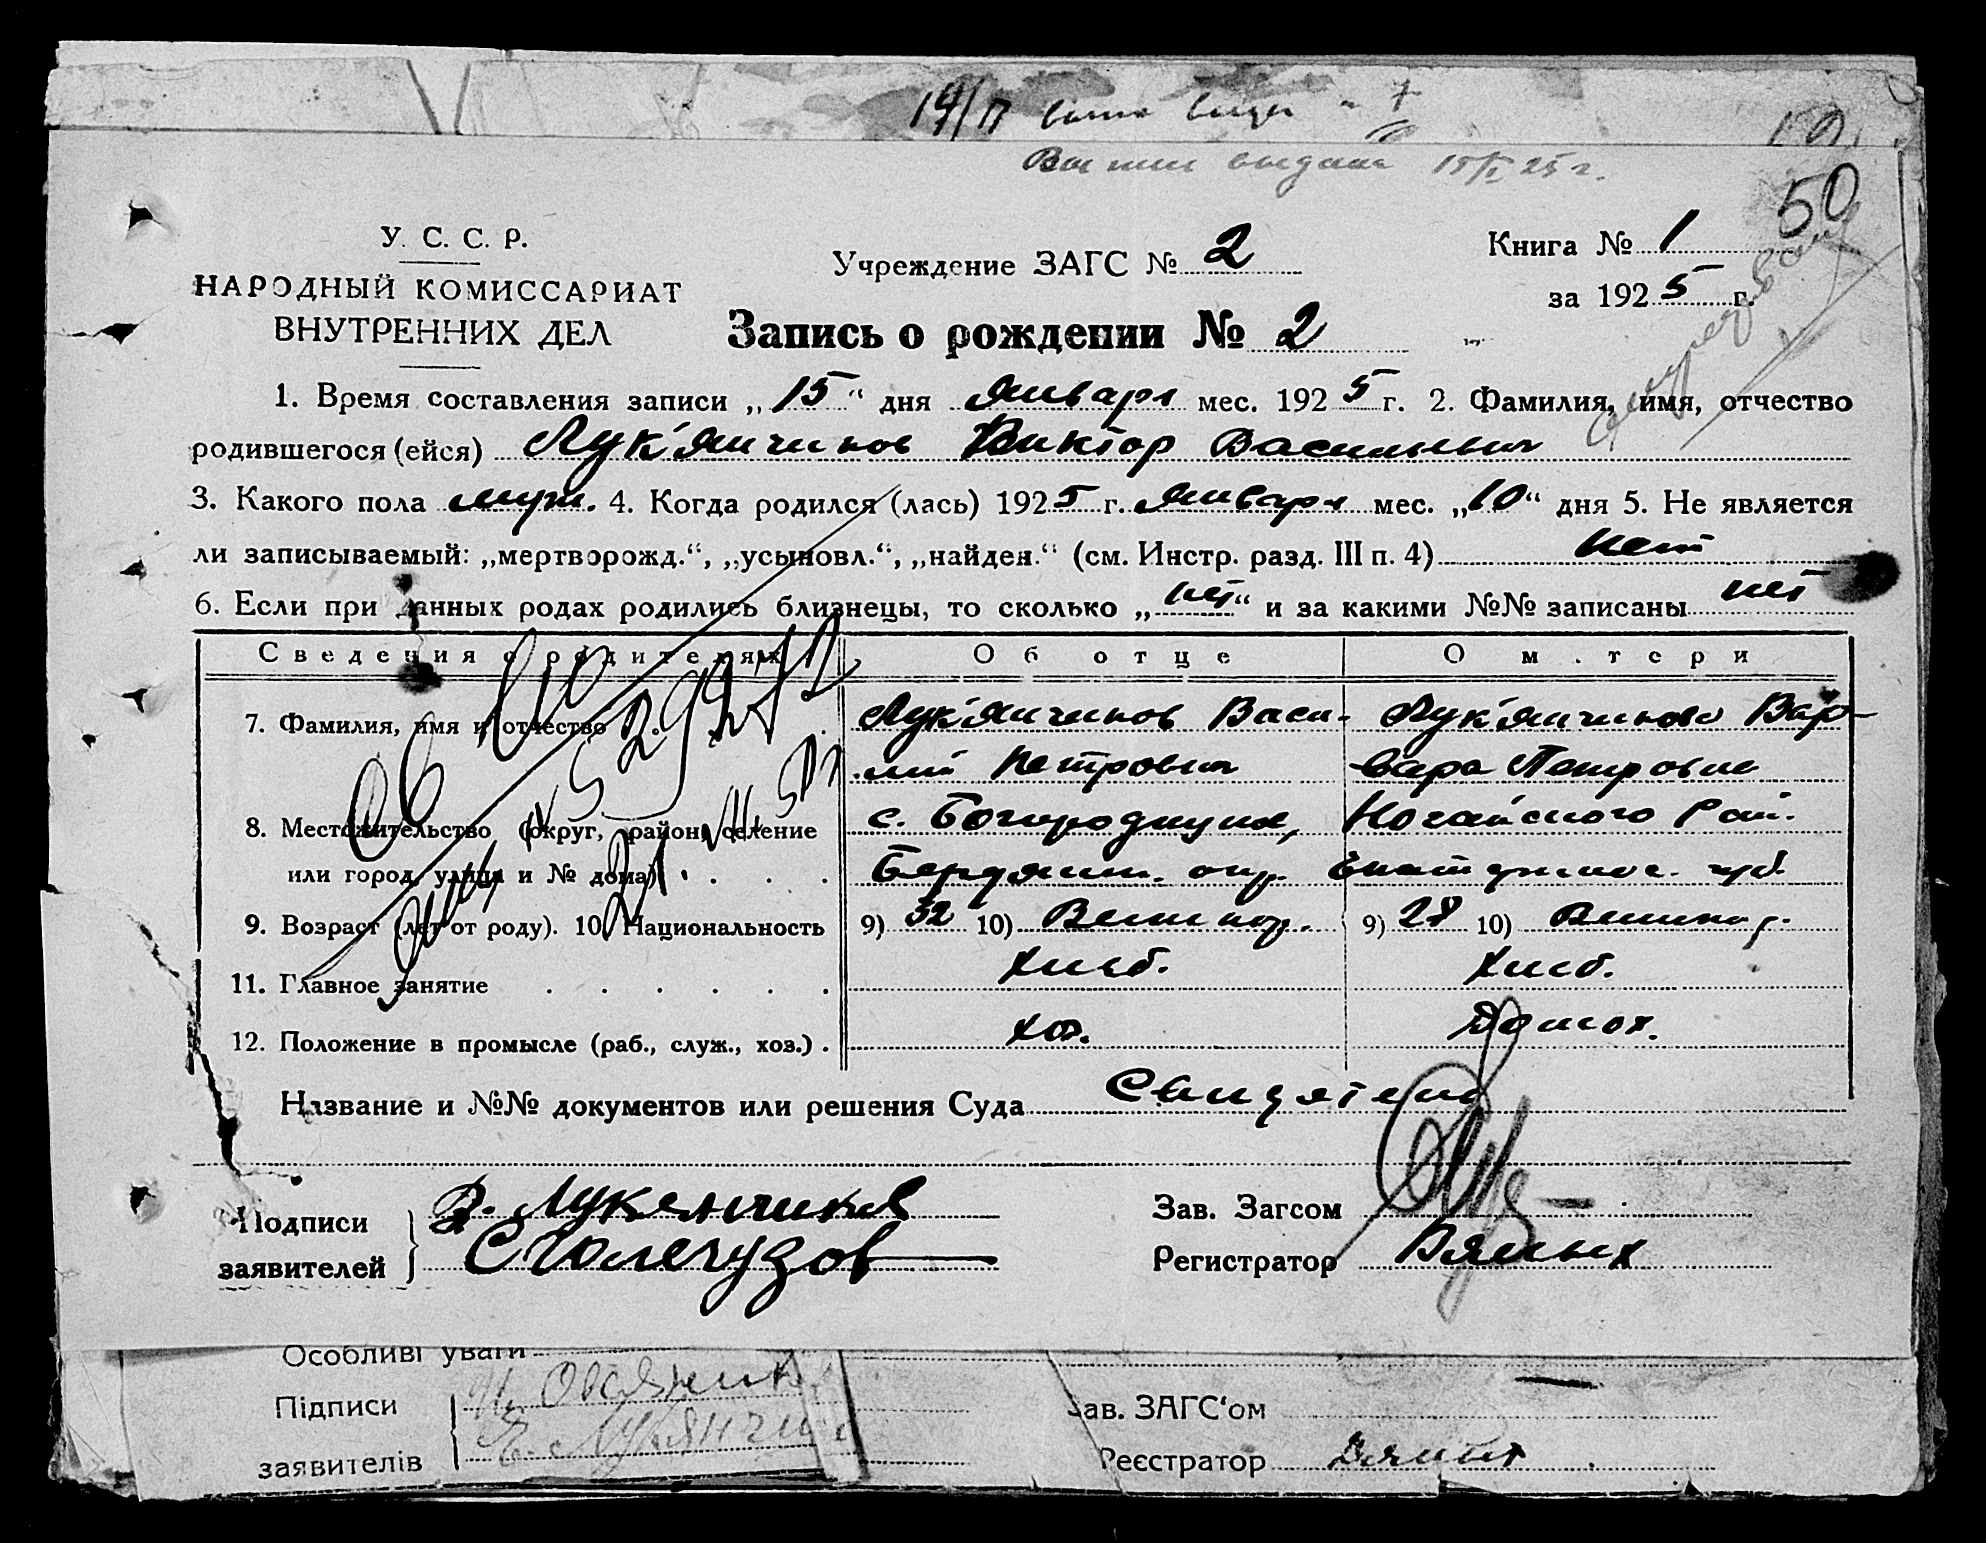 Выпис выдана 15/I 25 г.
50
У. С. С. Р.
НАРОДНЫЙ КОМИССАРИАТ
ВНУТРЕННИХ ДЕЛ
Учреждение ЗАГС № 2
Книга № 1
за 1925 г.
Запись о рождении № 2
1. Время составления записи „15“ дня Января мес. 1925 г. 2. Фамилия, имя, отчество
родившегося (ейся) Лук'янчиков Виктор Васильевич
3. Какого пола муж. 4. Когда родился (лась) 1925 г. Января мес. „10“ дня 5. Не является
ли записываемый: „мертворожд.“, „усыновл.“, „найден.“ (см. Инстр. разд. III п. 4) Нет
6. Если при данных родах родились близнецы, то сколько „нет“ и за какими №№ записаны нет
Сведения о родителях Об отце О матери
7. Фамилия, имя и отчество Лук'янчиков Васи- Лук'янчикова Вар-
лий Петрович вара Петровна
8. Местожительство (округ, район, селение с. Богородицкая, Ногайского Рай.
или город, улица и № дома) Бердянск. окр. Екатеринос. губ.
9. Возраст (лет от роду). 10. Национальность 9) 32 10) Великор. 9) 28 10) Великор.
11. Главное занятие Хлеб. Хлеб.
12. Положение в промысле (раб., служ., хоз.) Хоз. Домох.
Название и №№ документов или решения Суда
Подписи В. Лукянчиков Зав. Загсом
заявителей Регистратор
Особливі уваги
Підписи Зав. ЗАГС‘ом
заявителів Реєстратор